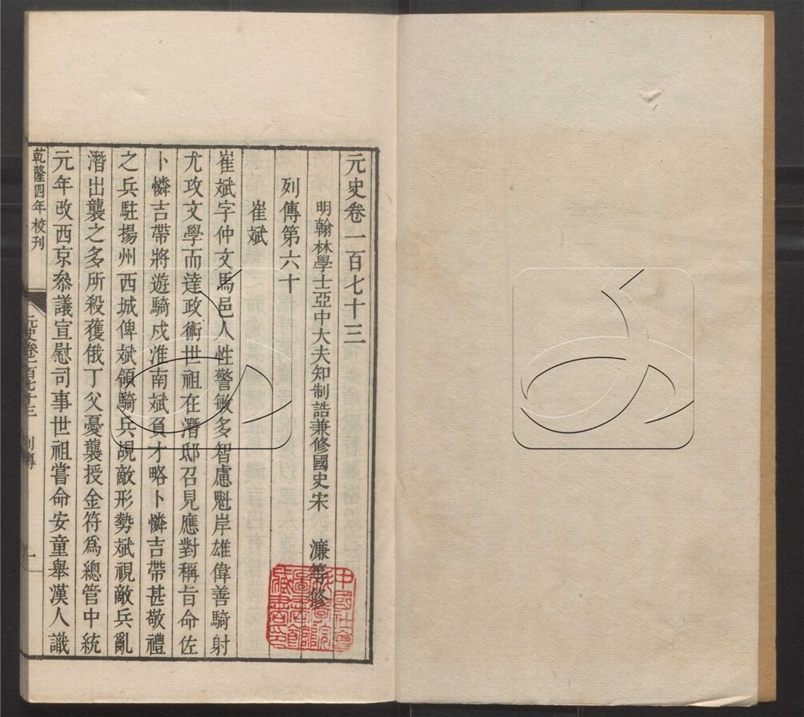 元史卷一百七十三
明翰林學士亞中大夫知制誥兼修國史宋　濂等修
列傳第六十
崔斌
崔斌字仲文馬邑人性警敏多智慮魁岸雄偉善騎射
尤攻文學而達政術世祖在潛邸召見應對稱旨命佐
卜憐吉帶將遊騎戍淮南斌負才略卜憐吉帶甚敬禮
之兵駐揚州西城俾斌領騎兵覘敵形勢斌視敵兵亂
潛出襲之多所殺獲俄丁父憂襲授金符為總管中統
元年改西京叅議宣慰司事世祖嘗命安童舉漢人識
乾隆四年校刊
元史卷一百七十三 列傳 一